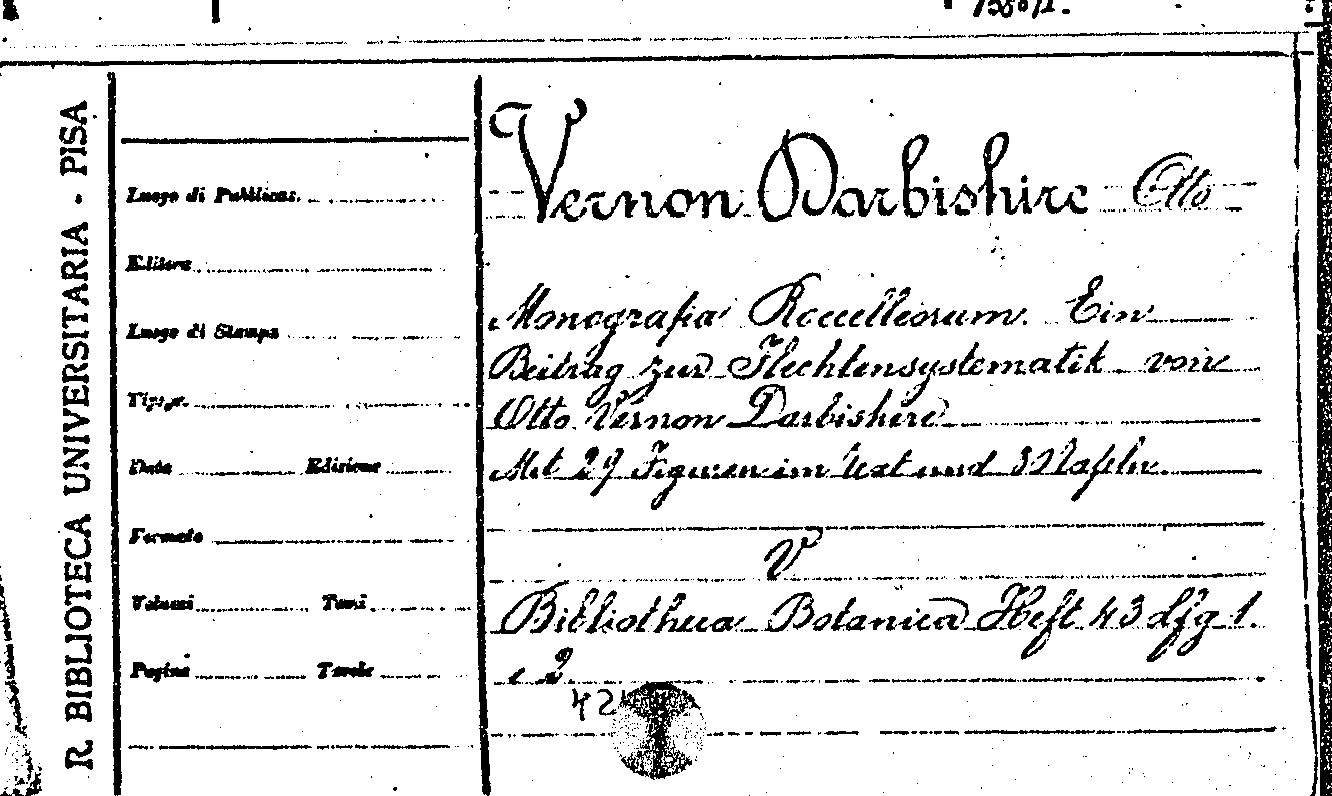 R. BIBLIOTECA UNIVERSITARIA - PISA
Luogo di Pubblicaz.
Editore
Luogo di Stampa
Tipogr.
Data Edizione
Formato
Volumi Tomi
Pagine Tavole
Vernon Darbishire Otto
Monografia Roccelleorum. Ein
Beitrag zur Flechtensystematik von
Otto Vernon Darbishire
Mit 29 Figuren im Text und 3 Tafeln.
V
Bibliotheca Botanica Heft 43 Lfg 1.
e 2.
42